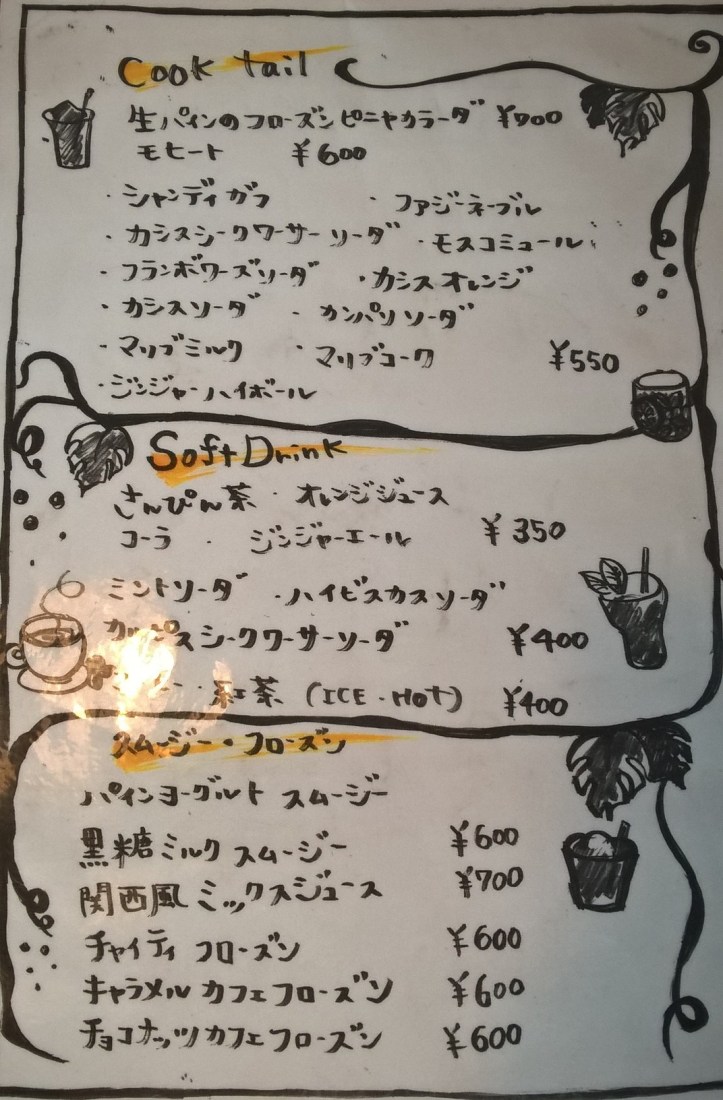 Cook tail
生パインのフローズンピニャカラーダ ¥700
モヒート ¥600
・シャンディガフ ・ファジーネーブル
・カシスシークワーサーソーダ ・モスコミュール
・フランボワーズソーダ ・カシスオレンジ
・カシスソーダ ・カンパリソーダ
・マリブミルク ・マリブコーク ¥550
・ジンジャーハイボール
Soft Drink
さんぴん茶・オレンジジュース
コーラ・ジンジャーエール ¥350
ミントソーダ・ハイビスカスソーダ
カルピスシークワーサーソーダ ¥400
・紅茶 (ICE・Hot) ¥400
スムージー・フローズン
パインヨーグルト スムージー
黒糖ミルク スムージー ¥600
関西風ミックスジュース ¥700
チャイティ フローズン ¥600
キャラメル カフェフローズン ¥600
チョコナッツカフェフローズン ¥600